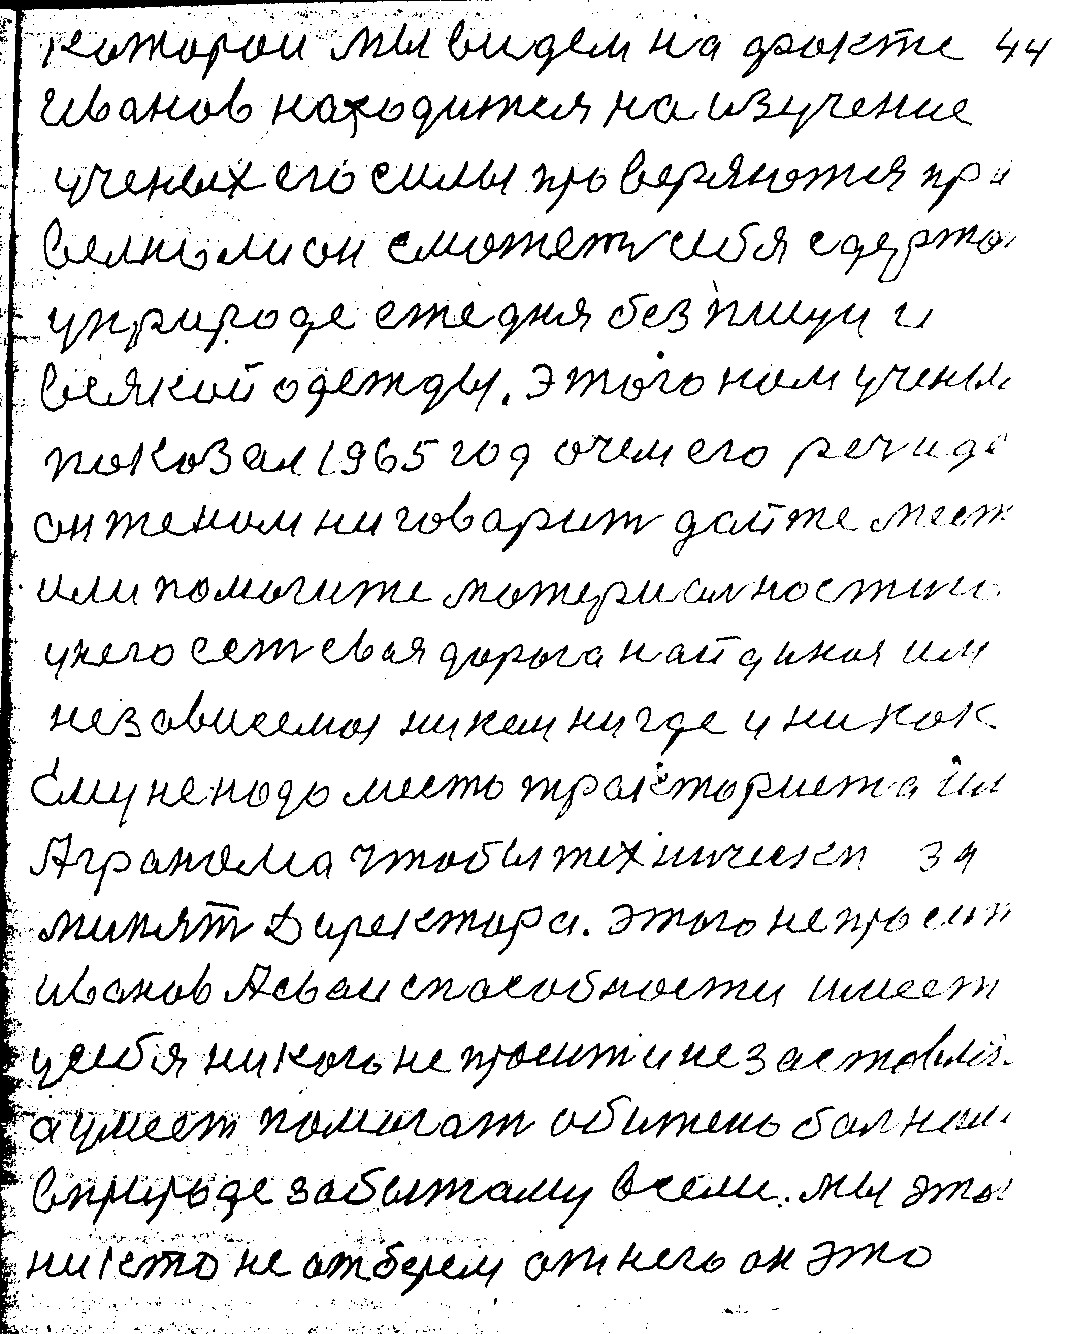 которой мы видем на факте 44
Иванов находится на изучение
ученых его силы проверяются при
велико ли он сможет себя сдержа
у природе ежедня без пищи и
всякой одежды. этого нам ученым
показал 1965 год о чем его речи
он же нам ни говарит дайте мест
или помогите материалностию
у него сет своя дорога найдиная им
независемоя никем нигде и никак
Ему не надо место тракториста или
Агранома чтобы технически за
минят Директора. этого не просит
Иванов А сваи способности имеет
у себя никого не просит и не заставля
а умеет помогат обижено болном
в природе забытаму всеми. мы это
никто не отберем от него он это